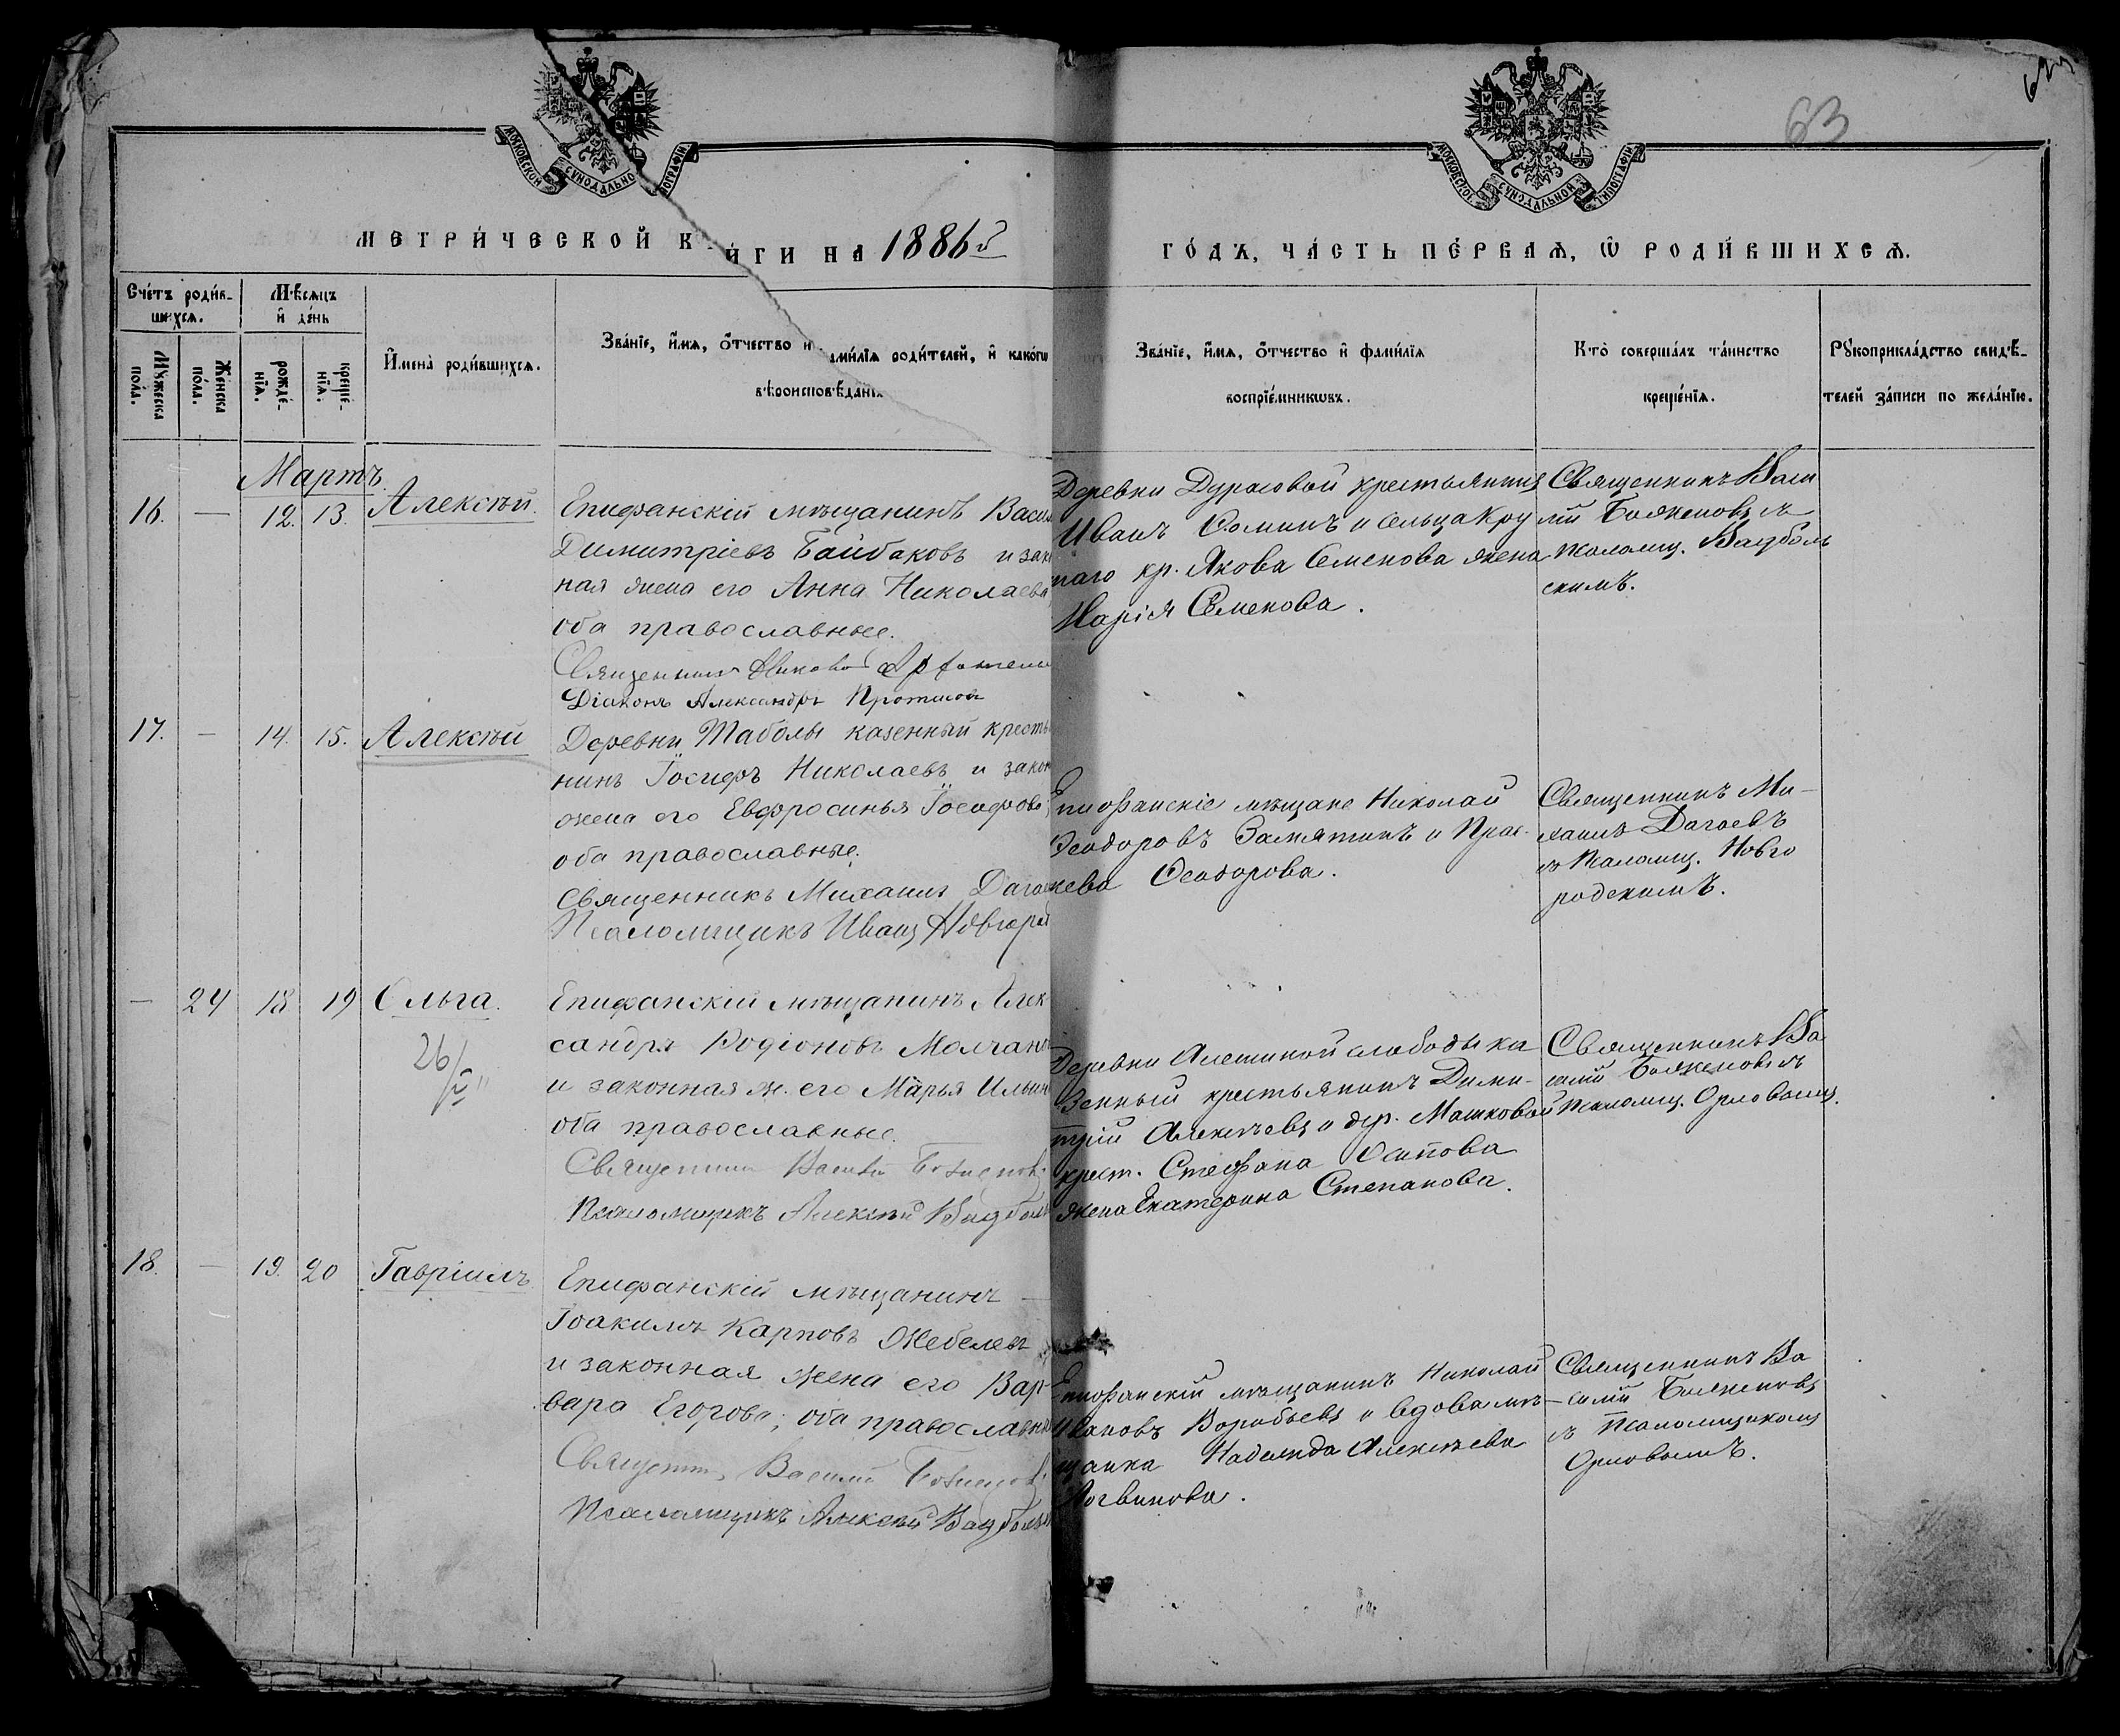 63
МЕТРИ́ЧЕСКОЙ К НИГИ НА 1886й
ГО́ДЪ, ЧА́СТЬ ПЕ́РВАѦ, Ѿ РОДИ́ВШИХСѦ.
Сче́тъ роди́в-
шихсѧ.
Мѣ́сѧцъ
и҆ де́нь
Мꙋ́жеска
по́ла.
Же́нска
по́ла.
рожде́-
нїѧ.
креще́-
нїѧ.
И҆мена̀ роди́вшихсѧ.
Зва́нїе, и҆́мѧ, ѻ҆́тчество и фами́лїѧ роди́телей, и҆ како́гѡ
вѣроисповѣ́данїѧ
Зва́нїе, и҆́мѧ, ѻ҆́тчество и҆ фами́лїѧ
воспрїе́мникѡвъ.
Кто̀ соверша́лъ та́инство
креще́нїѧ.
Рꙋкоприкла́дство свидѣ́-
телей за́писи по жела́нїю.
Мартъ
16. — 12. 13. Алексѣй.
Епифанскій мѣщанинъ Васил
Димитріевъ Байбаковъ и зак
ная жена его Анна Николаева
оба православные.
Священникъ
Діаконъ Александръ Протасов
Деревни Дурасовой крестьянинъ
Иванъ Ѳоминъ и сельца Кру
таго кр. Якова Семенова жена
Марія Семенова.
Священникъ Васи
лій Боженовъ съ
псаломщ. Вадболь
скимъ.
17. — 14. 15. Алексѣй
Деревни Таболы казенный кресть
нинъ Іосифъ Николаевъ и закон
жена его Евфросинья Іосифова
оба православные.
Священникъ Михаилъ Дагае
Псаломщикъ Иванъ Новгород
Епифанскіе мѣщане Николай
Ѳеодоровъ Замятинъ и Прас-
кева Ѳеодорова.
Священникъ Ми-
хаилъ Дагаевъ
съ псаломщ. Новго
родскимъ.
— 24 18 19 Ольга.
26/V
Епифанскій мѣщанинъ Алек
сандръ Родіоновъ Молчано
и законная ж. его Марья Ильин
оба православные.
Священникъ Василій Боженовъ
Псаломщикъ Алексѣй Вадболь
Деревни Алешиной слободы ка
зенный крестьянинъ Дими-
трій Алексѣевъ и дер. Машковой
крест. Стефана Осипова
жена Екатерина Степанова.
Священникъ Ва
силій Боженовъ съ
псаломщ. Орловымъ.
18. — 19. 20 Гавріилъ
Епифанскій мѣщанинъ
Іоакимъ Карповъ Жебелевъ
и законная жена его Вар-
вара Егорова; оба православны
Священникъ Василій Боженовъ
Псаломщикъ Алексѣй Вадбольск
Епифанскій мѣщанинъ Николай
Ивановъ Воробьевъ и вдова мѣ-
щанка Надежда Алексѣева
Логвинова.
Священникъ Ва
силій Боженовъ
съ псаломщикомъ
Орловымъ.